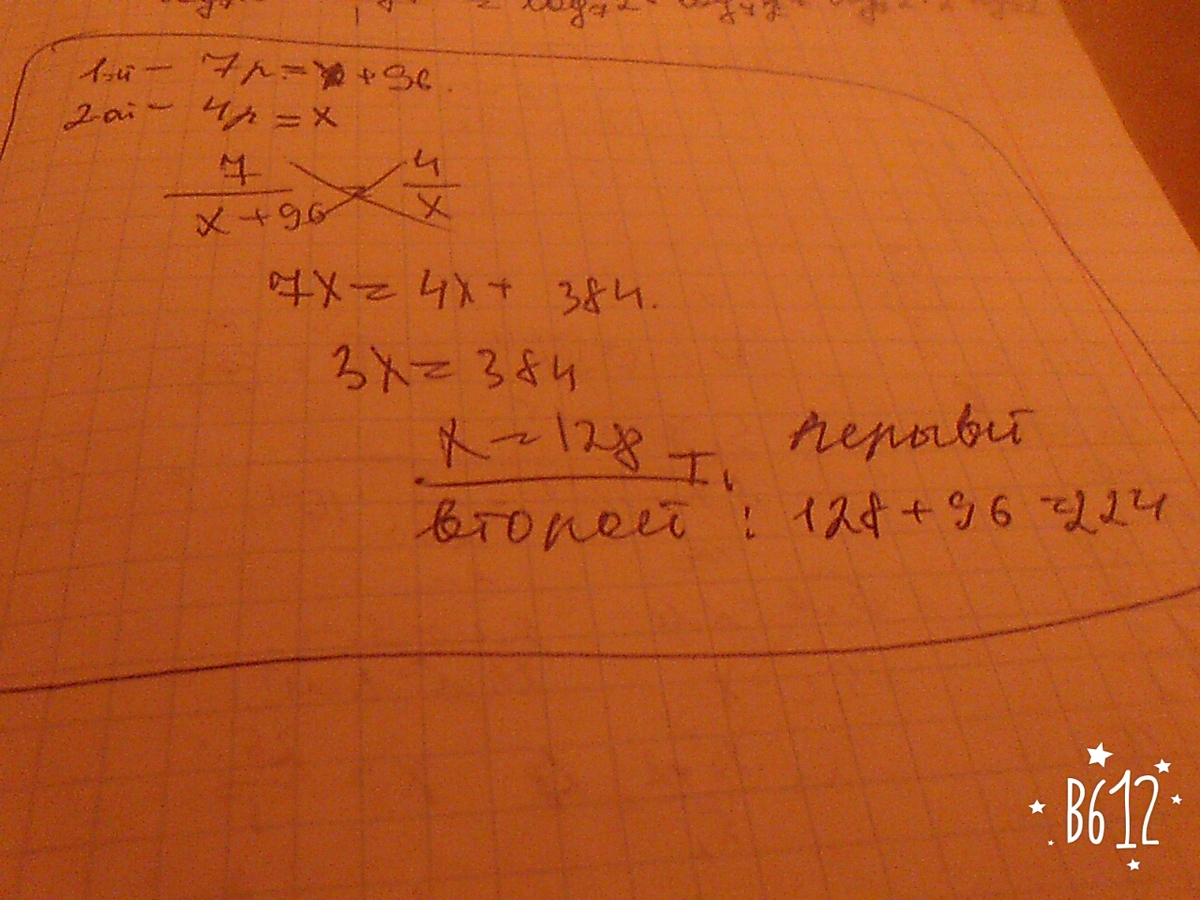 1-ый - 7р = x + 96.
2-ой - 4р = x
7 4
x + 96 = x
7x = 4x + 384.
3x = 384
x = 128 первый
второй : 128 + 96 = 224
B612